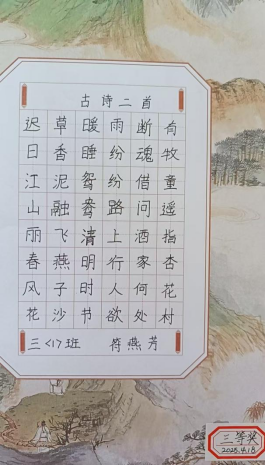 古诗二首
迟日江山丽春风花
草香泥融飞燕子沙
暖睡鸳鸯清明时节
雨纷纷路上行人欲
断魂借问酒家何处
有牧童遥指杏花村
三<1>班 符燕芳
三等奖
2025.4.18